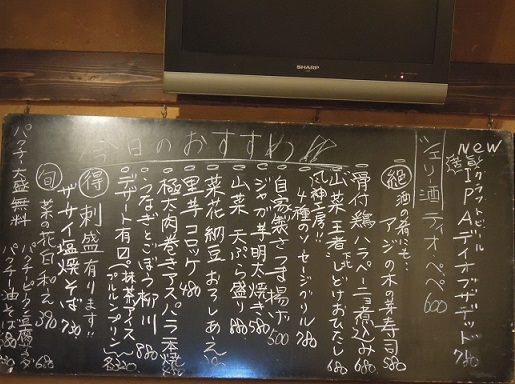 SHARP
今日のおすすめ
New
クラフトビール
IPA デイオブザデッド 780
シェリー酒 ティオペペ 600
絶 酒の肴にも…
アジの木の芽寿司 580
骨付鶏ハラペーニョ煮込み 680
山菜王者!! しどけおひたし 680
4種のソーセージグリル
自家製さつま揚げ 500
ジャガ芋明太焼き 580
山菜 天ぷら盛り
菜花納豆おろしあえ
里芋コロッケ 480
極太肉巻きアスパラ一本焼
うなぎとごぼう柳川 780
デザート有□
抹茶アイス
プルシシプリン
得 刺盛有ります!!
ザーサイ塩焼そば 730
旬 菜の花白和え
パクチー大盛無料
パクチー油そば